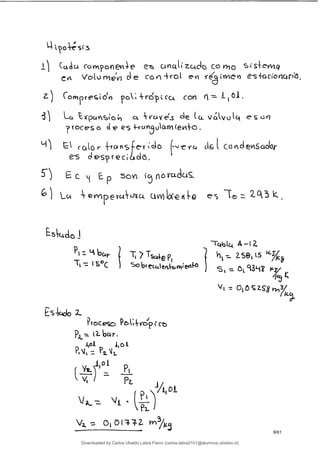 Hipotésis
1) Cada componente es analizado como sistema
en volumén de control en régimen estacionario.
2) Compresión politrópica con n = 1,01.
3) La Expansión a través de la válvula es un
proceso de estrangulamiento.
4) El calor transferido fuera del condensador
es despreciado.
5) Ec y Ep son ignoradas.
6) La temperatura ambiente es To = 293 K.
Estado 1
P1 = 4 bar
T1 = 15°C
T1 > Tsat@P1
Sobrecalentamiento
Tabla A-12
h1 = 258,15 KJ/Kg
S1 = 0,9348 KJ/Kg K
V1 = 0,05258 m³/Kg
Estado 2
Proceso Politrópico
P2 = 12 bar.
P1 V1^1,01 = P2 V2^1,01
(V2/V1)^1,01 = P1/P2
V2 = V1 · (P1/P2)^1/1,01
V2 = 0,01772 m³/Kg
8/61
Downloaded by Carlos Ubaldo Labra Fierro (carlos.labra2101@alumnos.ubiobio.cl)